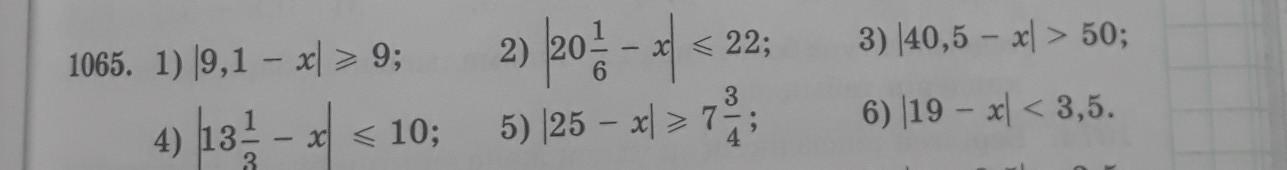 1065. 1) |9,1 − x| ⩾ 9; 2) |20 1/6 − x| ⩽ 22; 3) |40,5 − x| > 50;
4) |13 1/3 − x| ⩽ 10; 5) |25 − x| ⩾ 7 3/4; 6) |19 − x| < 3,5.